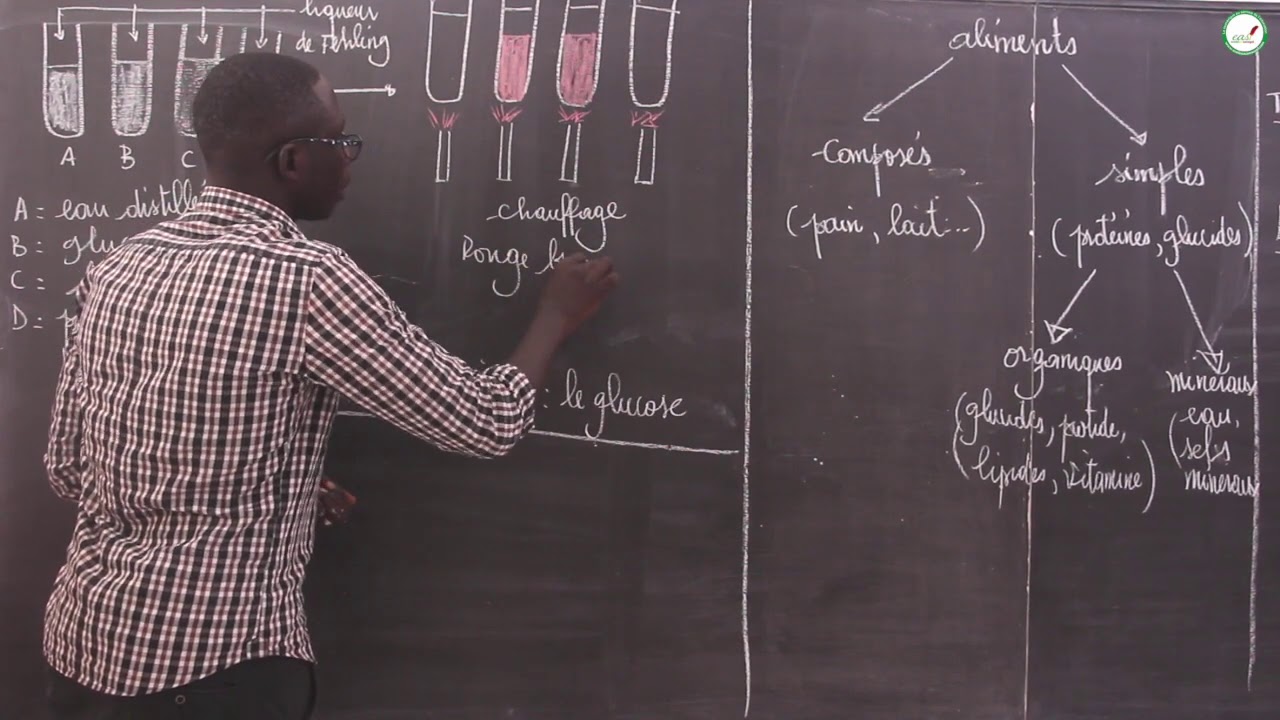 liqueur
de Fehling
A
B
C
A = eau distillé
B = glu
C =
D = p
chauffage
Rouge br
: le glucose
aliments
composés
simples
(pain, lait...)
(protéines, glucides)
organiques
minéraux
(glucides, protide,
lipides, vitamine)
(eau,
sels
minéraux
eas!